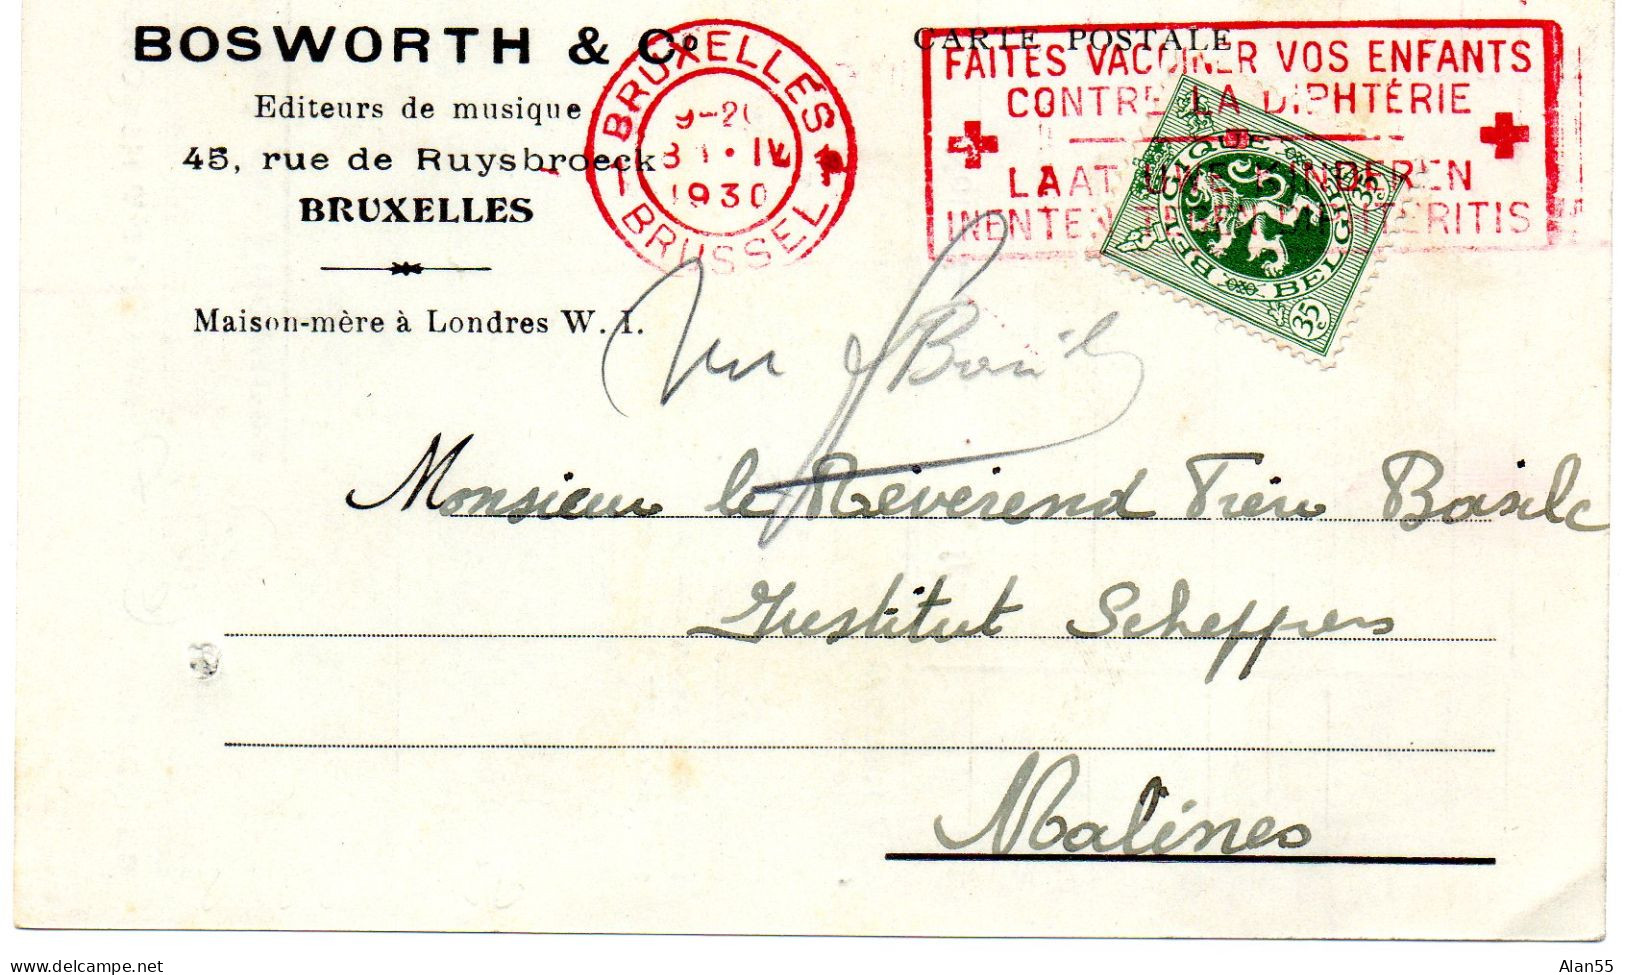 BOSWORTH & Co
Editeurs de musique
45, rue de Ruysbroeck
BRUXELLES
Maison-mère à Londres W. I.
1 BRUXELLES
9-20
IV
1930
BRUSSEL
CARTE POSTALE
FAITES VACCINER VOS ENFANTS
CONTRE LA DIPHTÉRIE
LAAT UWE KINDEREN
INENTEN TEGEN DIPHTERITIS
BELGIQUE BELGIË
35c
35c
Monsieur le Révérend Frère Basile
Institut Scheppers
Malines
www.delcampe.net
Alan55